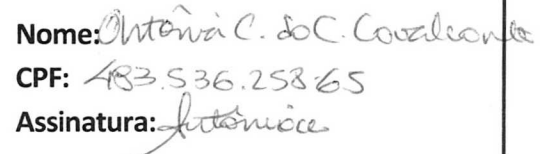 Nome: Antônia C. do C. Cavalcante
CPF: 483.536.258-65
Assinatura: Antônia